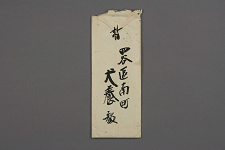 四谷区南町
犬養毅